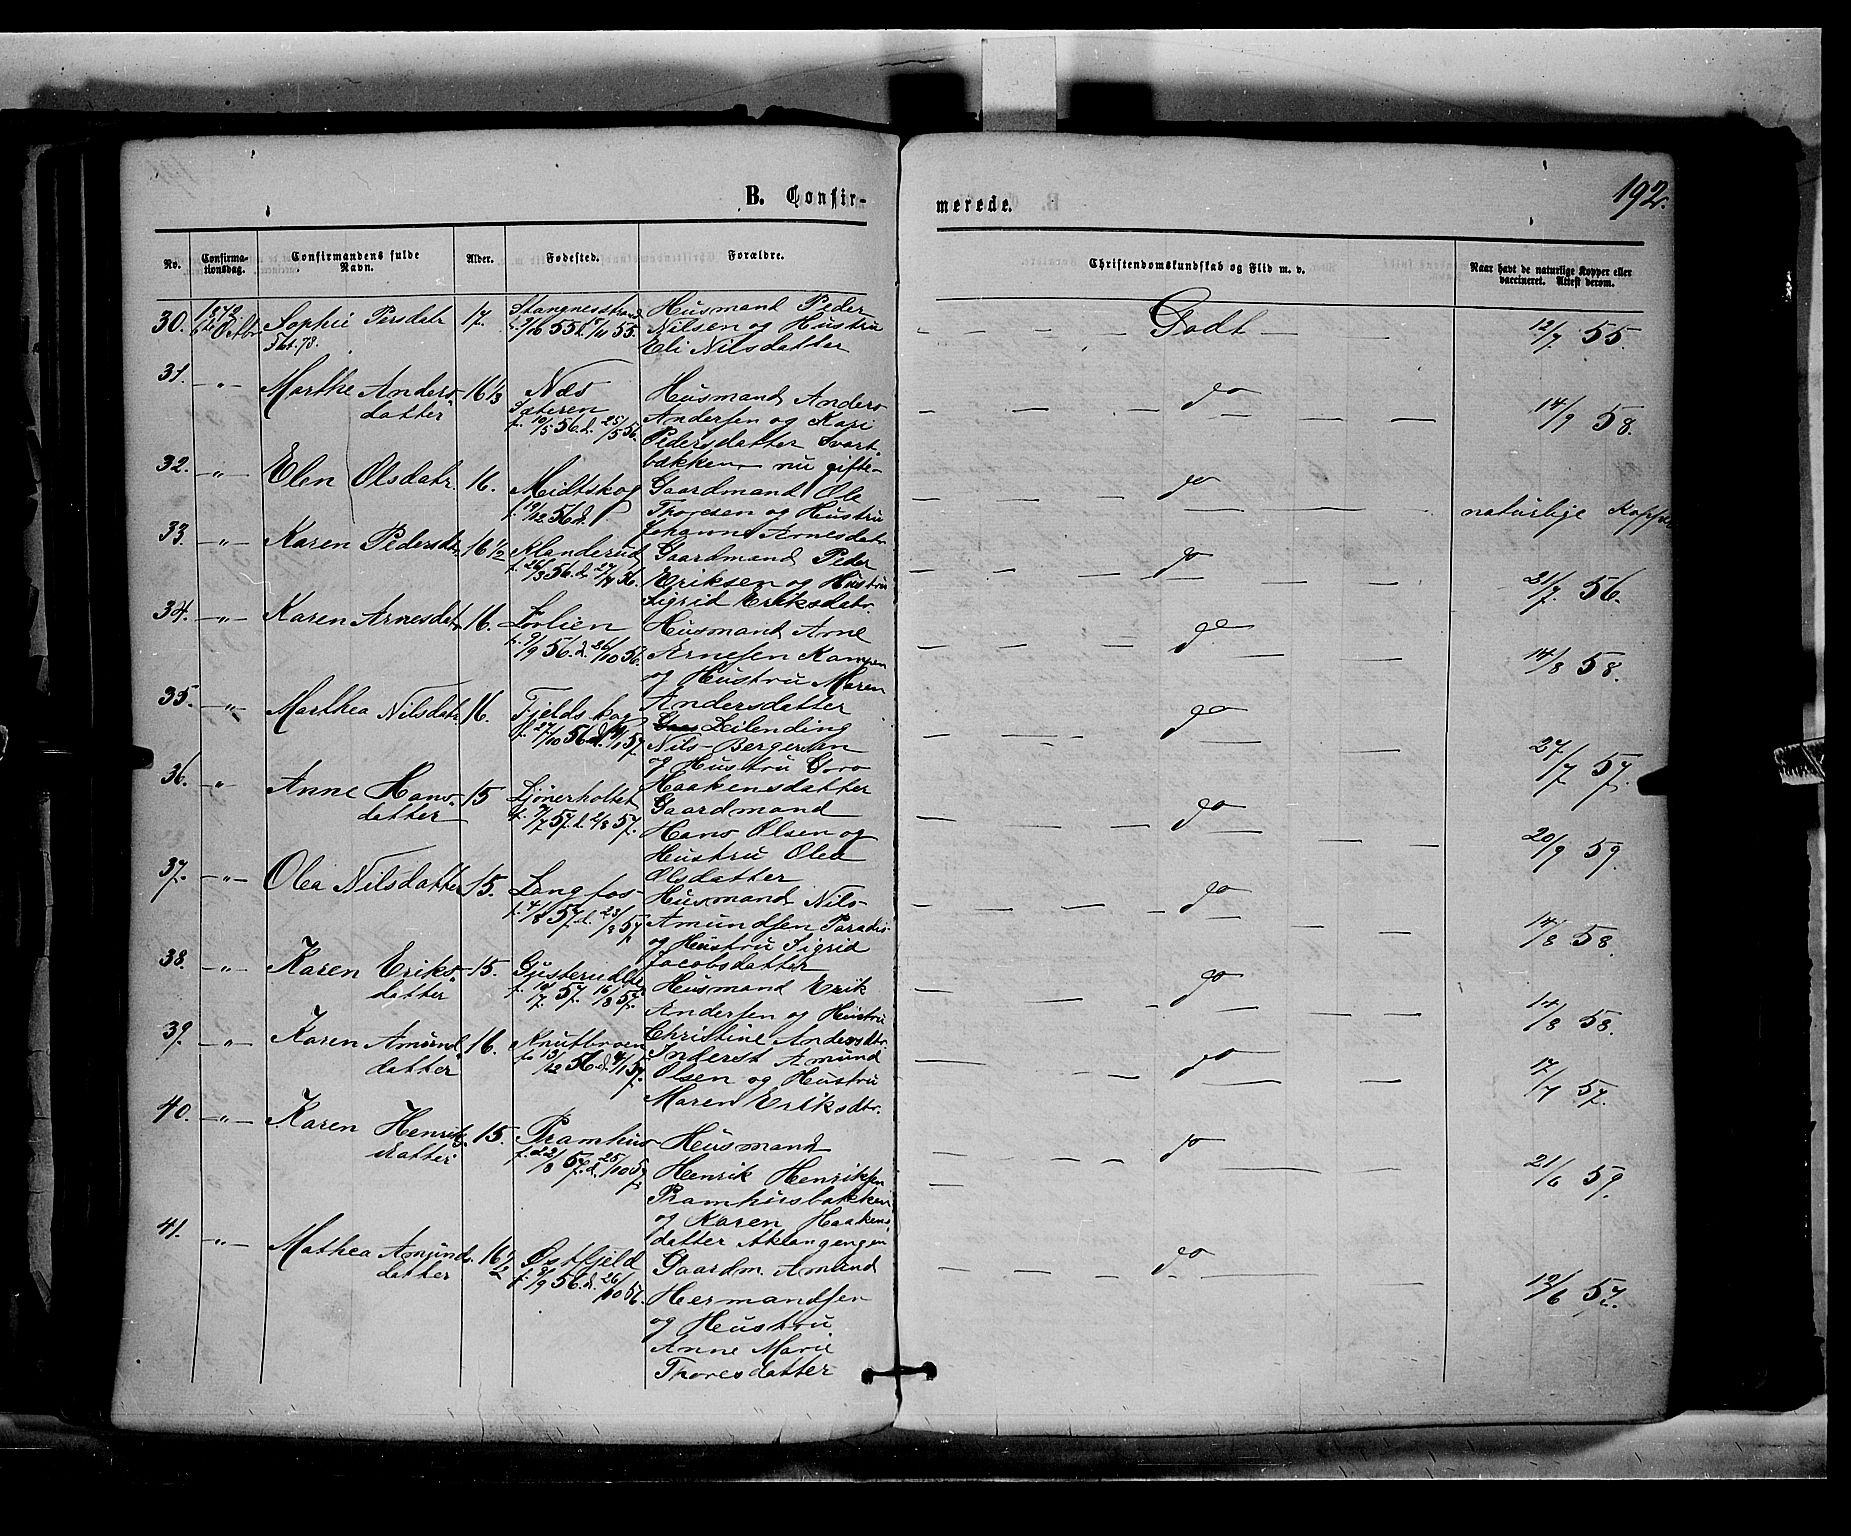 192.
B. Confir-
merede.
No.
Confirma-
tionsdag.
Confirmandens fulde
Navn.
Alder.
Fødested.
Forældre.
Christendomskundskab og Flid m. v.
Naar havt de naturlige Kopper eller
vaccineret. Attest derom.
30. 1872 Sophie Persdatr 17. Stangnesstrand Husmand Peder
Nilsen og Hustru
Eli Nilsdatter
Godt 12/7 55.
31. -"- Marthe Anders- 16 1/3 Næs Husmand Anders
datter Sæteren Andersen og Kari
f. 10/5 56 d. 25/5 56. Pedersdatter Svart-
bakken nu gifte
do 14/9 58.
32. -"- Elen Olsdatr. 16. Midtskog Gaardmand Ole
f. 19/12 56 d. Thoresen og Hustru
Johanne Arnesdatr
do naturlige Kopper
33. -"- Karen Pedersdtr 16 1/2 Klanderud Gaardmand Peder
f. 26/3 56 d. 27/4 56. Eriksen og Hustru
Sigrid Eriksdatr.
do 21/7 56.
34. -"- Karen Arnesdatr 16. Lovlien Husmand Arne
f. 9/9 56. d. 26/10 56. Arnesen Kampen
og Hustru Maren
Andersdatter
do 14/8 58.
35. -"- Marthea Nilsdatr 16. Fjeldskog Leilending
f. 27/10 56 d. 4/1 57. Nils Bergersen
og Hustru Goro
Haakensdatter
do 27/7 57.
36. " Anne Hans- 15 Ljønerholtet Gaardmand
datter f. 9/7 57. d. 2/8 57. Hans Olsen og
Hustru Olea
Olsdatter
do 20/9 59.
37. -"- Olea Nilsdatter 15. Langfos Husmand Nils
f. 4/8 57. d. 23/8 57. Amundsen Paradis
og Hustru Sigrid
Jacobsdatter
do 14/8 58.
38. -"- Karen Eriks- 15. Husmand Erik
datter f. 10/7. 57. 16/8 57. Andersen og Hustru
Christine Andersdtr.
do 14/8 58.
39. -"- Karen Amund- 16. Knutbroen Inderst Amund
datter fo 13/12 56 d. 4/1 57. Olsen og Hustru
Maren Eriksdtr.
do 17/7 57.
40. -"- Karen Henrik- 15. Pramhus Husmand
datter f. 22/8 57. d. 25/10 57. Henrik Henriksen
Pramhusbakken
og Karen Haakens-
datter Aklangengen
do 21/6 59.
41. -"- Mathea Amunds- 16 1/2 Østfjeld Gaardm. Amund
datter f. 8/9 56. d. 26/10 56. Hermandsen
og Hustru
Anne Marie
Thoresdatter
do 12/6 57.